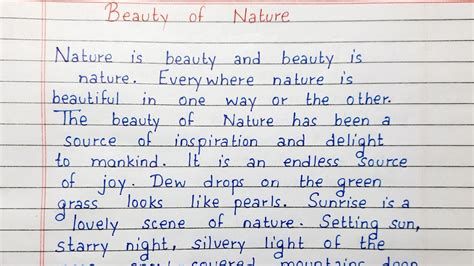 Beauty of Nature
Nature is beauty and beauty is
nature. Everywhere nature is
beautiful in one way or the other.
The beauty of Nature has been a
source of inspiration and delight
to mankind. It is an endless source
of joy. Dew drops on the green
grass looks like pearls. Sunrise is a
lovely scene of nature. Setting sun,
starry night, silvery light of the
covered mountains deep